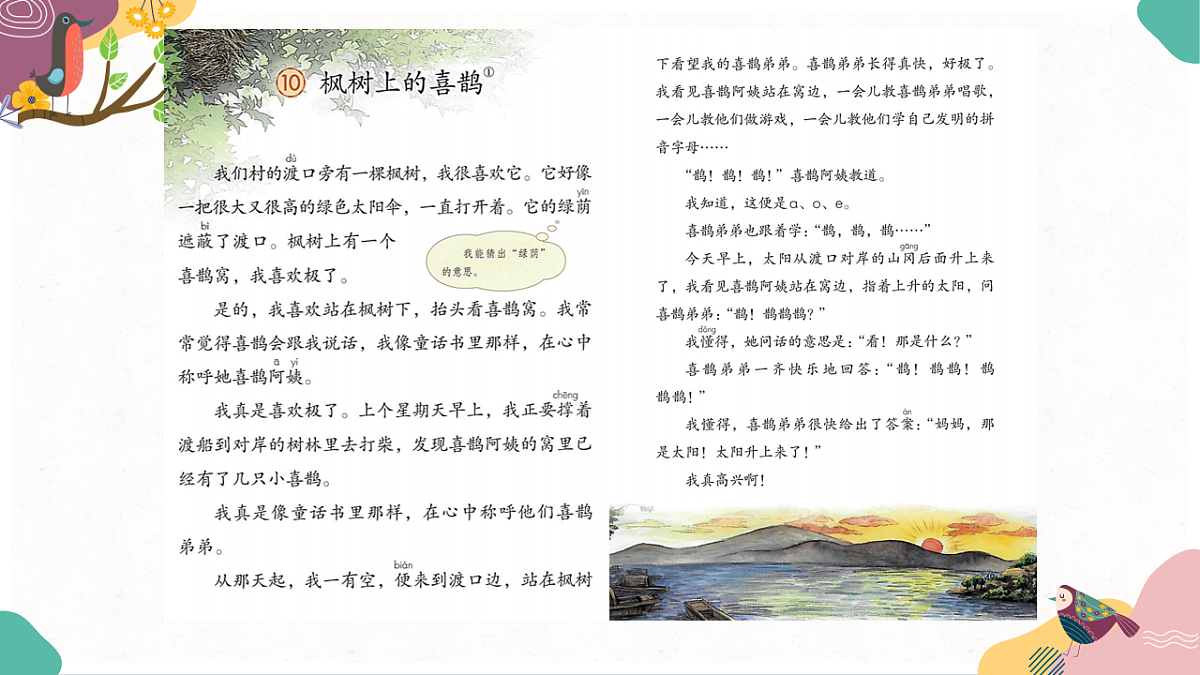 ⑩ 枫树上的喜鹊①
dù
我们村的渡口旁有一棵枫树，我很喜欢它。它好像
yīn
一把很大又很高的绿色太阳伞，一直打开着。它的绿荫
bì
遮蔽了渡口。枫树上有一个
喜鹊窝，我喜欢极了。
我能猜出“绿荫”
的意思。
是的，我喜欢站在枫树下，抬头看喜鹊窝。我常
常觉得喜鹊会跟我说话，我像童话书里那样，在心中
ā yí
称呼她喜鹊阿姨。
chēng
我真是喜欢极了。上个星期天早上，我正要撑着
渡船到对岸的树林里去打柴，发现喜鹊阿姨的窝里已
经有了几只小喜鹊。
我真是像童话书里那样，在心中称呼他们喜鹊
弟弟。
biàn
从那天起，我一有空，便来到渡口边，站在枫树
下看望我的喜鹊弟弟。喜鹊弟弟长得真快，好极了。
我看见喜鹊阿姨站在窝边，一会儿教喜鹊弟弟唱歌，
一会儿教他们做游戏，一会儿教他们学自己发明的拼
音字母……
“鹊！鹊！鹊！”喜鹊阿姨教道。
我知道，这便是ɑ、o、e。
喜鹊弟弟也跟着学：“鹊，鹊，鹊……”
gāng
今天早上，太阳从渡口对岸的山冈后面升上来
了，我看见喜鹊阿姨站在窝边，指着上升的太阳，问
喜鹊弟弟：“鹊！鹊鹊鹊？”
dǒng
我懂得，她问话的意思是：“看！那是什么？”
喜鹊弟弟一齐快乐地回答：“鹊！鹊鹊！鹊
鹊鹊！”
àn
我懂得，喜鹊弟弟很快给出了答案：“妈妈，那
是太阳！太阳升上来了！”
我真高兴啊！